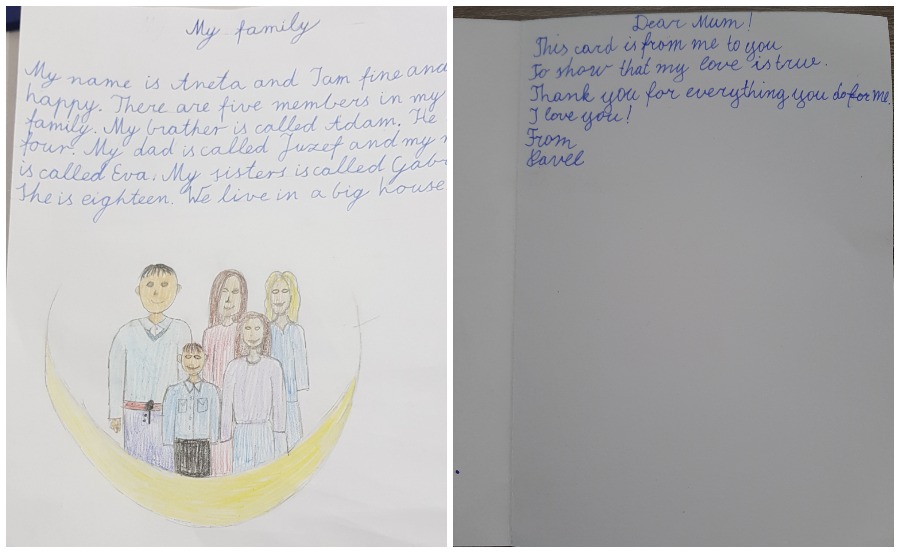 My family
My name is Aneta and I am fine and
happy. There are five members in my
family. My brather is called Adam. He
four. My dad is called Juzef and my
is called Eva. My sisters is called Gab
She is eighteen. We live in a big house
Dear Mum!
This card is from me to you
To show that my love is true.
Thank you for everything you do for me.
I love you!
From
Pavel